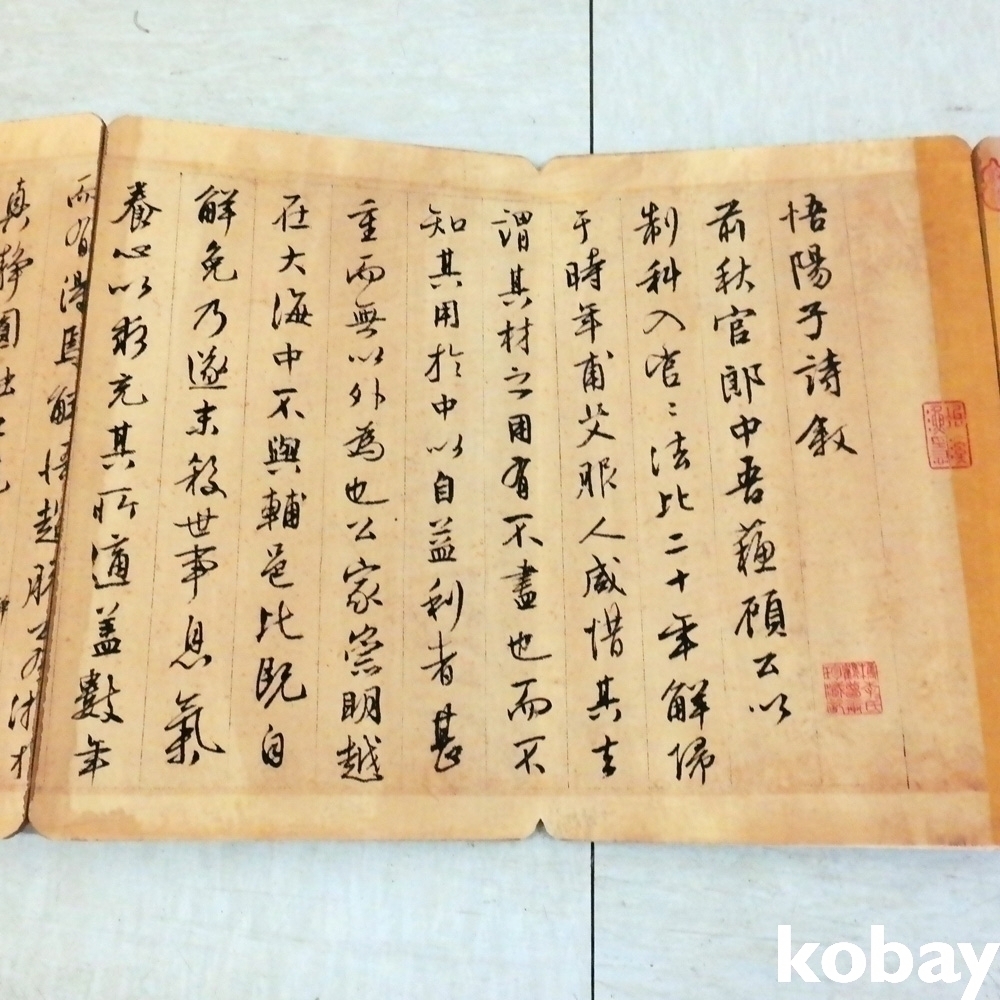 悟陽子詩敘
前秋官郎中吾蘓顧公以
制科入官〻法比二十年解歸
于時年甫艾服人咸惜其去
謂其材之用有不盡也而不
知其用於中以自益利者甚
重而無以外為也公家崇明越
在大海中不與輔邑比既自
解免乃遂末殺世事息氣
養心以求充其所適蓋數年
而有得焉解悟超脫
真靜圓
kobay